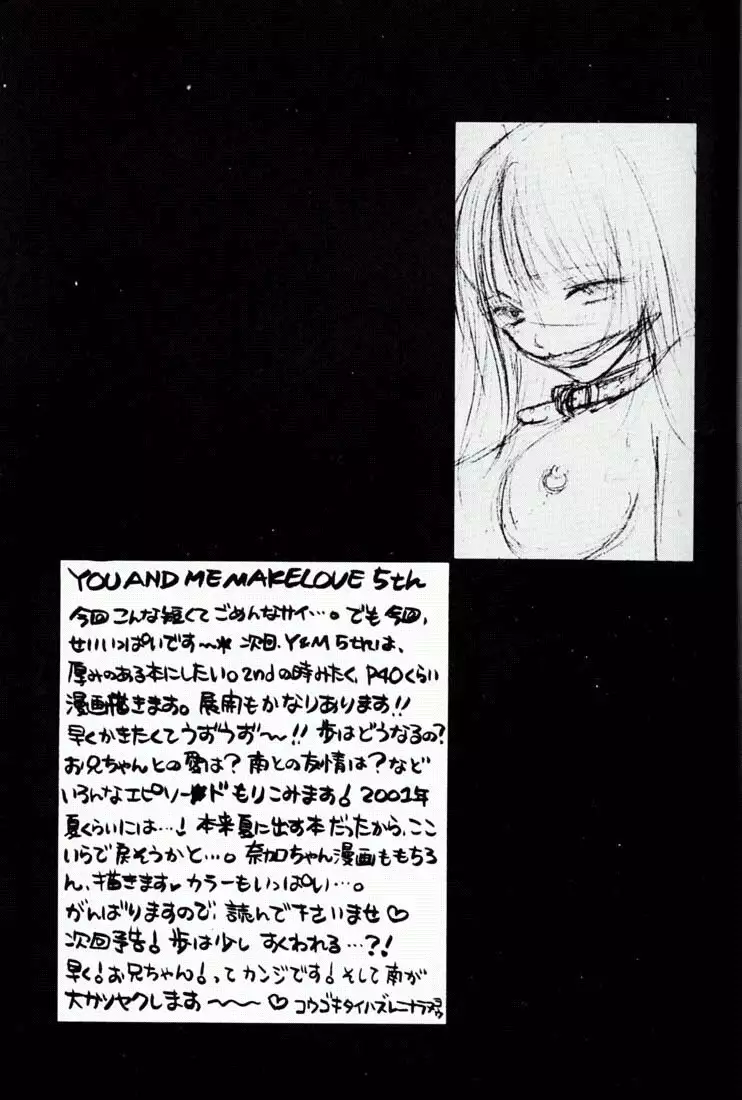 YOU AND ME MAKELOVE 5th
今回こんな短くてごめんなサイ…。でも今回、
せいいっぱいです〜* 次回、Y&M 5thは、
厚みのある本にしたい。2ndの時みたく、P40くらい
漫画描きます。展開もかなりあります!!
早くかきたくてうずうず〜!! 歩はどうなるの?
お兄ちゃんとの愛は?南との友情は?など
いろんなエピソードもりこみます!2001年
夏くらいには…!本来夏に出す本だったから、ここ
いらで戻そうかと…。奈加ちゃん漫画ももちろ
ん、描きます♥カラーもいっぱい…。
がんばりますので、読んで下さいませ♡
次回予告!歩は少しすくわれる…?!
早く!お兄ちゃん!ってカンジです!そして南が
大カツヤクします〜〜〜♡